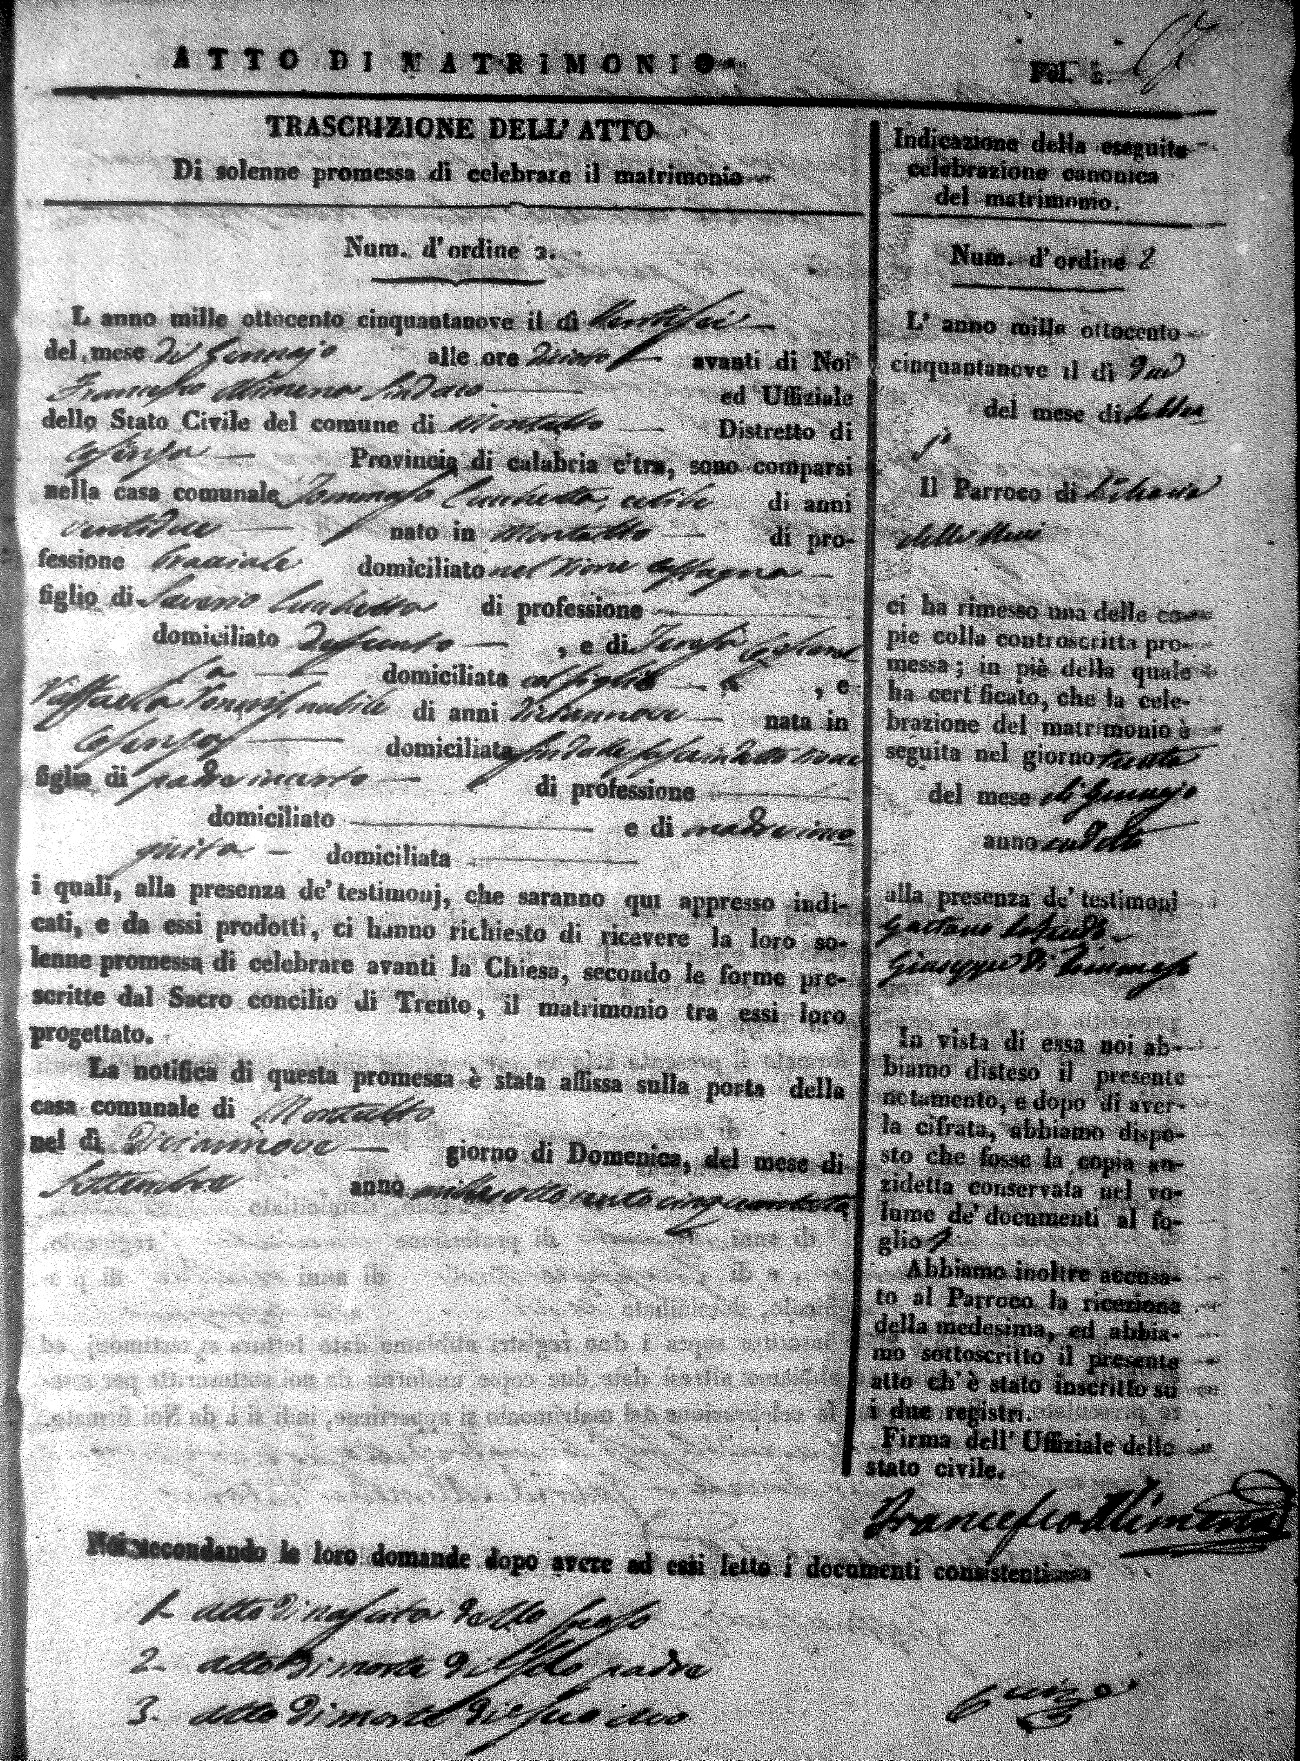 ATTO DI MATRIMONIO
Fol. 2.
TRASCRIZIONE DELL' ATTO
Di solenne promessa di celebrare il matrimonio
Num. d'ordine 2.
L anno mille ottocento cinquantanove il dì ventisei
del mese di Gennajo alle ore avanti di Noi
Francesco Alimena Sindaco ed Uffiziale
dello Stato Civile del comune di Montalto Distretto di
Cosenza Provincia di calabria c'tra, sono comparsi
nella casa comunale Tommaso celibe di anni
nato in Montalto di pro-
fessione bracciale domiciliato nel Rione
figlio di Saverio di professione
domiciliato defunto , e di Teresa
domiciliata col figlio , e
Raffaella nubile di anni diciannove nata in
Cosenza domiciliata
figlia di padre incerto di professione
domiciliato e di madre inco
gnita domiciliata
i quali, alla presenza de' testimonj, che saranno qui appresso indi-
cati, e da essi prodotti, ci hanno richiesto di ricevere la loro so-
lenne promessa di celebrare avanti la Chiesa, secondo le forme pre-
scritte dal Sacro concilio di Trento, il matrimonio tra essi loro
progettato.
La notifica di questa promessa è stata affissa sulla porta della
casa comunale di Montalto
nel dì Diciannove giorno di Domenica, del mese di
Settembre anno mille ottocento cinquantotto
Indicazione della eseguita
celebrazione canonica
del matrimonio.
Num. d'ordine 2
L' anno mille ottocento
cinquantanove il dì due
del mese di Febbra
jo
Il Parroco di
ci ha rimesso una delle co-
pie colla controscritta pro-
messa; in piè della quale
ha cert ficato, che la cele-
brazione del matrimonio è
seguita nel giorno trenta
del mese di Gennajo
anno sudetto
alla presenza de' testimonj
Gaetano
Giuseppe di Tommaso
In vista di essa noi ab-
biamo disteso il presente
notamento, e dopo di aver-
la cifrata, abbiamo dispo-
sto che fosse la copia an-
zidetta conservata nel vo-
lume de' documenti al fo-
glio
Abbiamo inoltre accusa-
to al Parroco la ricezione
della medesima, ed abbia-
mo sottoscritto il presente
atto ch' è stato inscritto su
i due registri.
Firma dell' Uffiziale dello
stato civile.
Francesco Alimena
Noi secondando le loro domande dopo avere ad essi letto i documenti consistenti
1. atto di nascita dello sposo
2. atto di morte di suo padre
3. atto di morte di suo avo